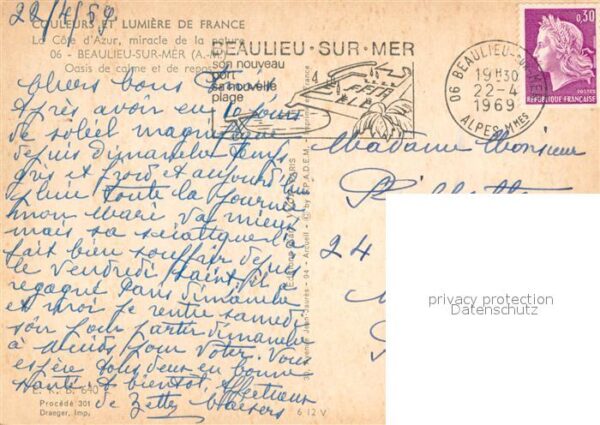 22/4/69
COULEURS ET LUMIÈRE DE FRANCE
La Côte d'Azur, miracle de la nature
06 - BEAULIEU-SUR-MER (A.-M.)
Oasis de calme et de repos
BEAULIEU · SUR · MER
son nouveau
port
sa nouvelle
plage
06 BEAULIEU-SUR-MER
19H30
22-4
1969
ALPES-MMES
0,30
POSTES
RÉPUBLIQUE FRANÇAISE
chers tous
Après avoir eu 10 jours
de soleil magnifique
depuis dimanche temps
gris et froid et aujourd'hui
pluie toute la journée
mon mari va mieux
mais sa sciatique l'
fait bien souffrir depuis
le vendredi saint il
regagne Paris dimanche
et moi je rentre samedi
soir pour partir dimanche
à pour voter. Vous
espère tous deux en bonne
santé à bientôt, affectueux
de
Madame Monsieur
24
privacy protection
Datenschutz
Procédé 301
Draeger, Imp.
6 12 V